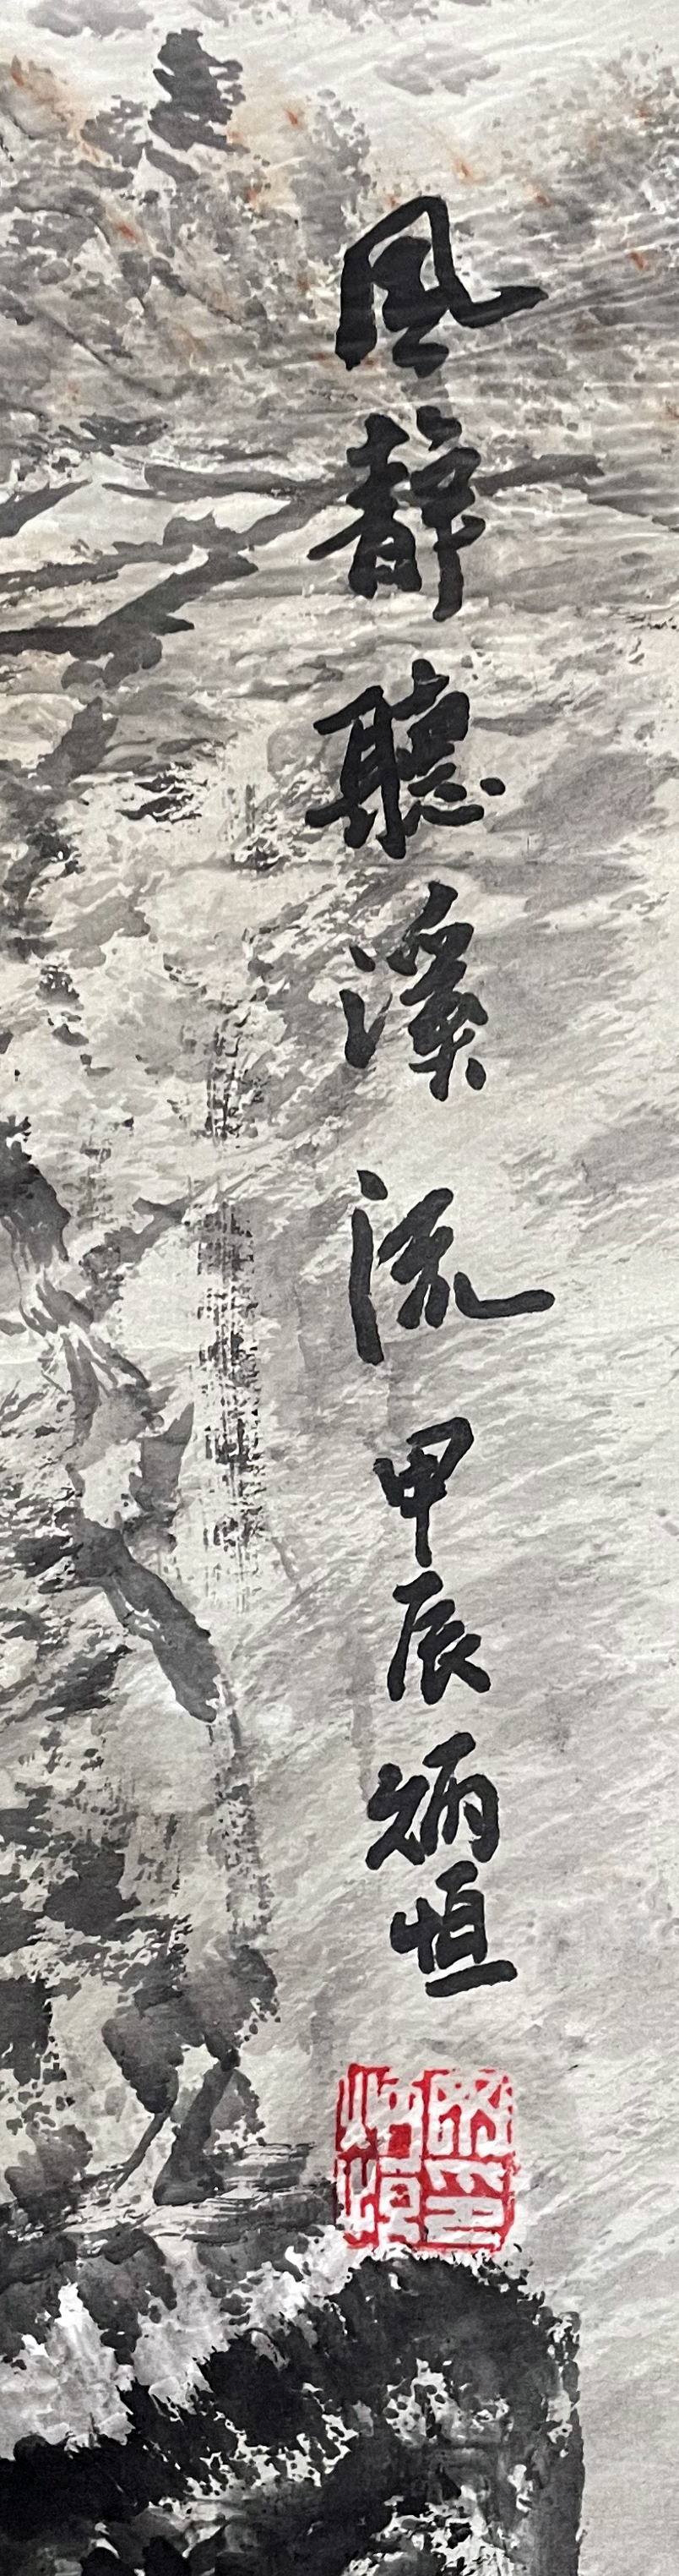 風靜聽溪流甲辰炳恒